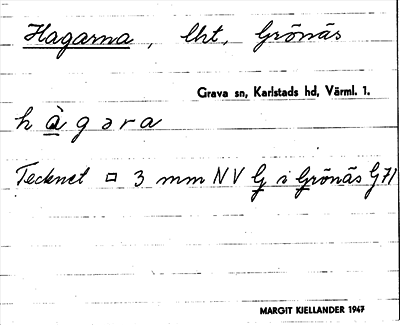 Hagarna, lht, Grönäs
Grava sn, Karlstads hd, Värml. l.
hàgara
Tecknet ¤ 3 mm NV G i Grönäs G71
MARGIT KJELLANDER 1947